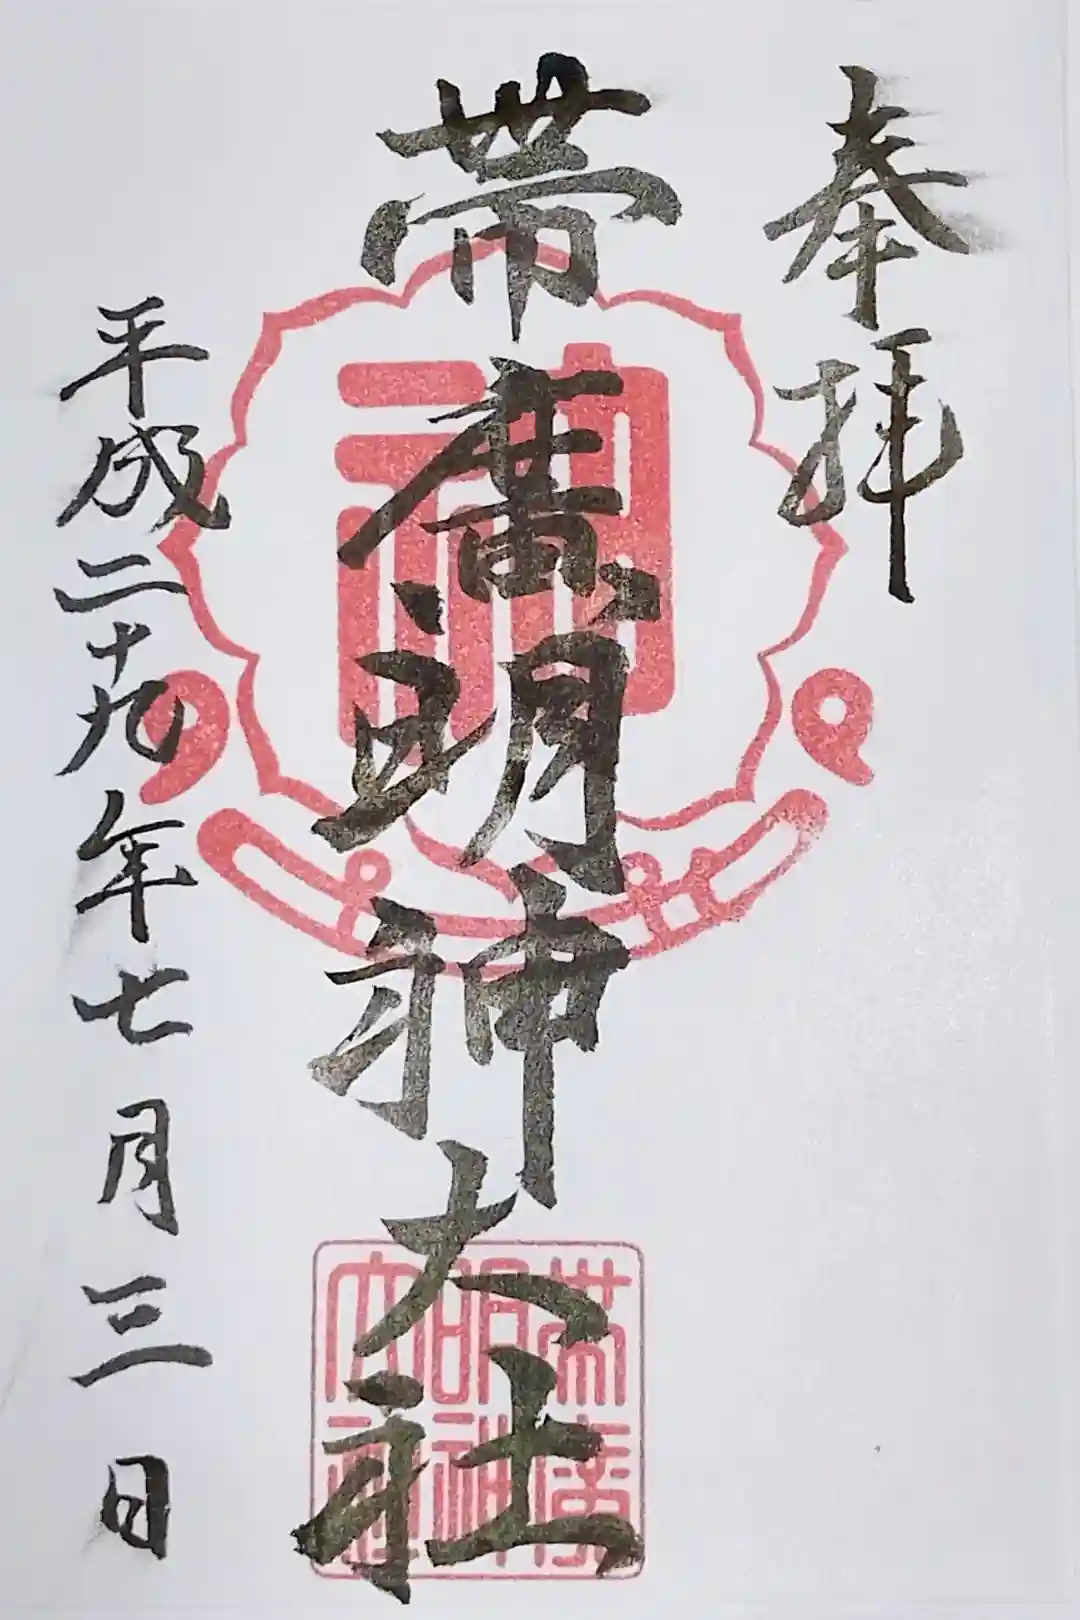 奉拝
帯廣明神大社
平成二十九年七月三日
神
帯廣
明神
大社